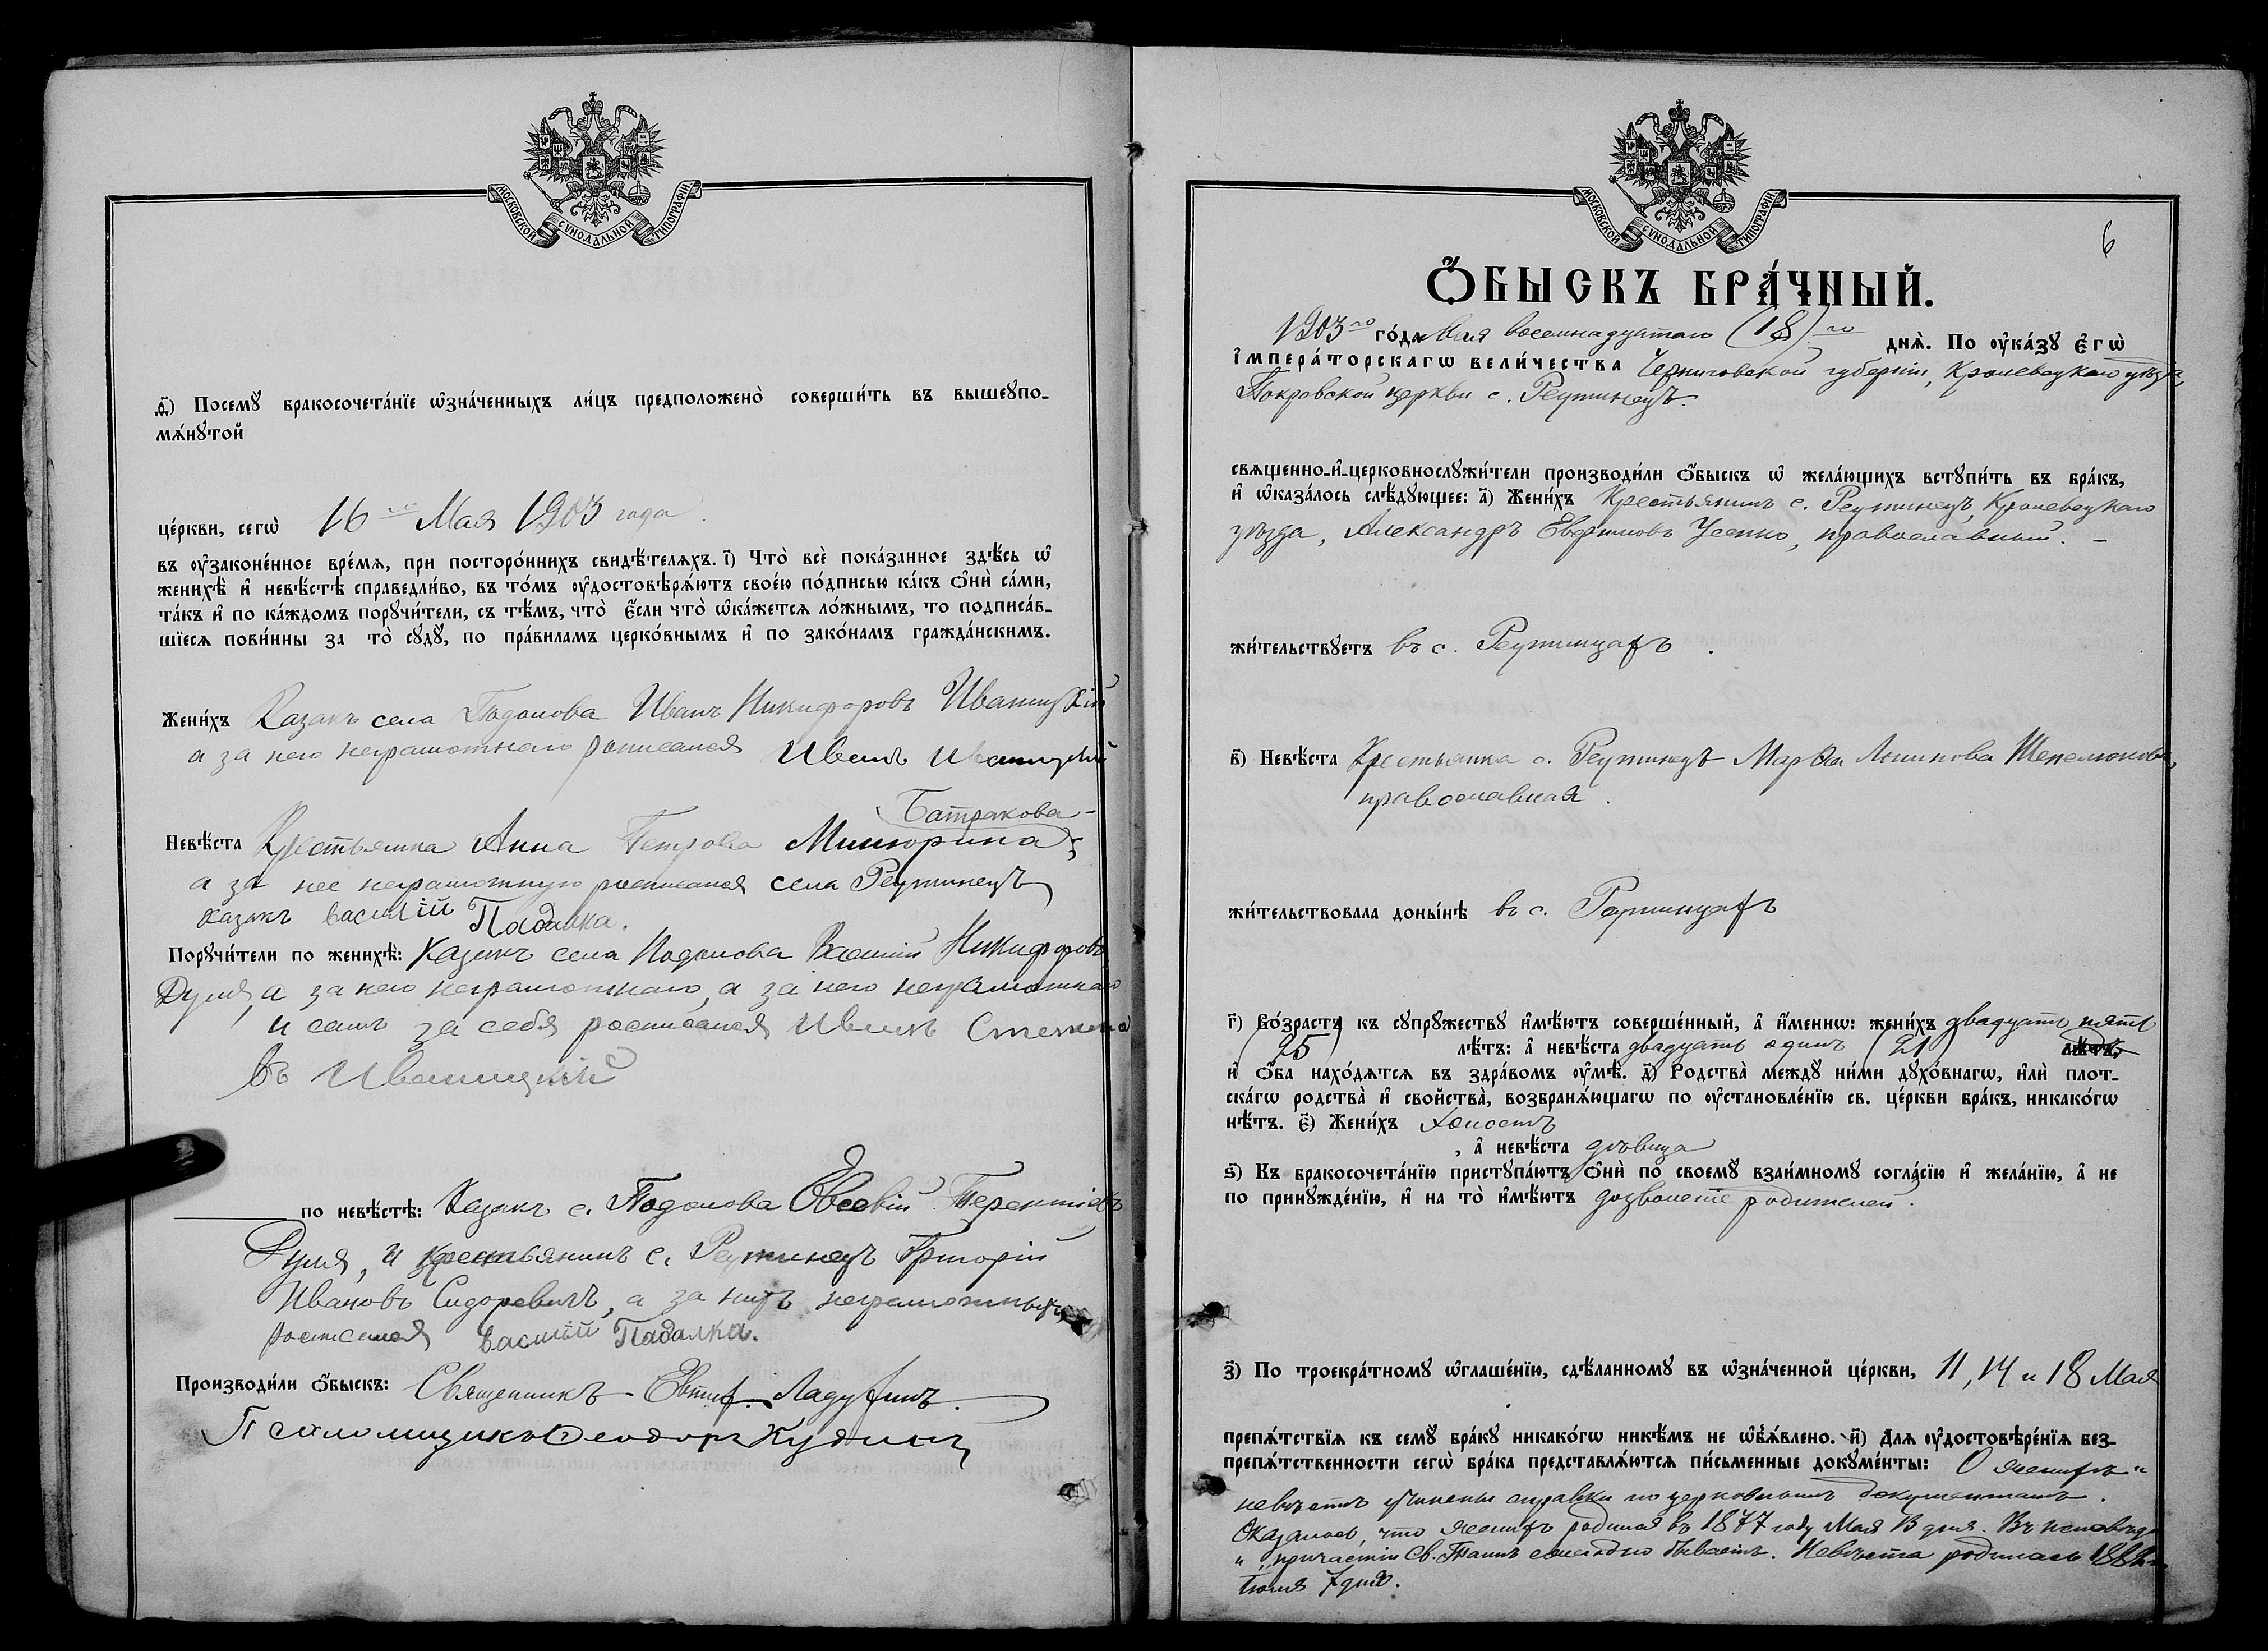 МОСКОВСКОЙ СѴНОДАЛЬНОЙ ТИПОГРАФІИ
д҃і) Посемꙋ бракосочета́нїе ѡ҆зна́ченныхъ ли́цъ предположено̀ соверши́ть въ вышеꙋпо-
мѧ́нꙋтой
це́ркви, сегѡ̀ 16го Мая 1903 года.
въ оу҆законе́нное вре́мѧ, при посторо́ннихъ свидѣ́телѧхъ. і҃) Что̀ всѐ пока́занное здѣ́сь ѡ҆
женихѣ̀ и҆ невѣ́стѣ справедли́во, въ то́мъ оу҆достовѣрѧ́ютъ свое́ю по́дписью ка́къ ѻ҆нѝ са́ми,
та́къ и҆ по ка́ждомъ порꙋчи́тели, съ тѣ́мъ, что̀ є҆́сли что̀ ѡ҆ка́жетсѧ ло́жнымъ, то подписа́в-
шїесѧ пови́нны за то̀ сꙋдꙋ̀, по пра́виламъ церко́внымъ и҆ по зако́намъ гражда́нскимъ.
Жени́хъ Казакъ села Подолова Иванъ Никифоровъ Иваницкій
а за него неграмотнаго росписался Иванъ Иваницкій
Батракова
Невѣ́ста Крестьянка Анна Петрова
а за нее неграмотную росписался села Реутинецъ
казакъ Василій Падалка.
Порꙋчи́тели по женихѣ̀: Казакъ села Подолова Василій Никифоровъ
Дуля, а за него неграмотнаго, а за него неграмотнаго
и самъ за себя росписался Иванъ
въ Иваницкій
по невѣ́стѣ: Казакъ с. Подолова Евсевій Терентіевъ
Дуля, и крестьянинъ с. Реутинецъ Григорій
Ивановъ Сидоревичъ, а за нихъ неграмотныхъ
росписался Василій Падалка.
Производи́ли ѻ҆́быскъ: Священникъ Евтиф. Ладухинъ.
Псаломщикъ Ѳеодоръ
МОСКОВСКОЙ СѴНОДАЛЬНОЙ ТИПОГРАФІИ
6
Ѻ҆́БЫСКЪ БРА́ЧНЫЙ.
1903го го́да Мая восемнадцатаго (18)го днѧ̀. По оу҆ка́зꙋ є҆гѡ̀
і҆мпера́торскагѡ вели́чества Черниговской губерніи, Кролевецкаго уѣзда,
Покровской церкви с. Реутинецъ.
свѧщенно-и҆-церковнослꙋжи́тели производи́ли ѻ҆́быскъ ѡ҆ жела́ющихъ встꙋпи́ть въ бра́къ,
и҆ ѡ҆каза́лось слѣ́дꙋющее: а҃) Жени́хъ Крестьянинъ с. Реутинецъ, Кролевецкаго
уѣзда, Александръ Евфимовъ Усенко, православный. –
жи́тельствꙋетъ въ с. Реутинцахъ.
в҃) Невѣ́ста Крестьянка с. Реутинецъ Марѳа Логинова Шепелюкова,
православная.
жи́тельствовала доны́нѣ въ с. Реутинцахъ
г҃) Во́зрастъ къ сꙋпрꙋ́жествꙋ и҆мѣ́ютъ соверше́нный, а҆ и҆́меннѡ: жени́хъ двадцать пять
(25) лѣ́тъ: а҆ невѣ́ста двадцать одинъ (21) лѣ́тъ,
и҆ ѻ҆́ба нахо́дѧтсѧ въ здра́вомъ оу҆мѣ̀. д҃) Родства̀ междꙋ̀ ни́ми дꙋхо́внагѡ, и҆лѝ плот-
ска́гѡ родства̀ и҆ свойства̀, возбранѧ́ющагѡ по оу҆становле́нїю св. це́ркви бра́къ, никако́гѡ
нѣ́тъ. є҃) Жени́хъ холостъ
, а҆ невѣ́ста дѣвица
ѕ҃) Къ бракосочета́нїю пристꙋпа́ютъ ѻ҆нѝ по своемꙋ̀ взаи́мномꙋ согла́сїю и҆ жела́нїю, а҆ не
по принꙋжде́нїю, и҆ на то̀ и҆мѣ́ютъ дозволеніе родителей.
з҃) По троекра́тномꙋ ѡ҆глаше́нїю, сдѣ́ланномꙋ въ ѡ҆зна́ченной це́ркви, 11, 14 и 18 Мая
препѧ́тствїѧ къ семꙋ̀ бра́кꙋ никако́гѡ никѣ́мъ не ѡ҆б̾ѧ́влено. и҃) Длѧ оу҆достовѣре́нїѧ без-
препѧ́тственности сегѡ̀ бра́ка представлѧ́ютсѧ пи́сьменные докꙋме́нты: О женихѣ и
невѣстѣ учинены справки по церковнымъ документамъ.
Оказалось, что женихъ родился въ 1877 году Мая дня. Въ исповѣди
и причастіи Св. Таинъ ежегодно бываетъ. Невѣста родилась
Іюля 7 дня.